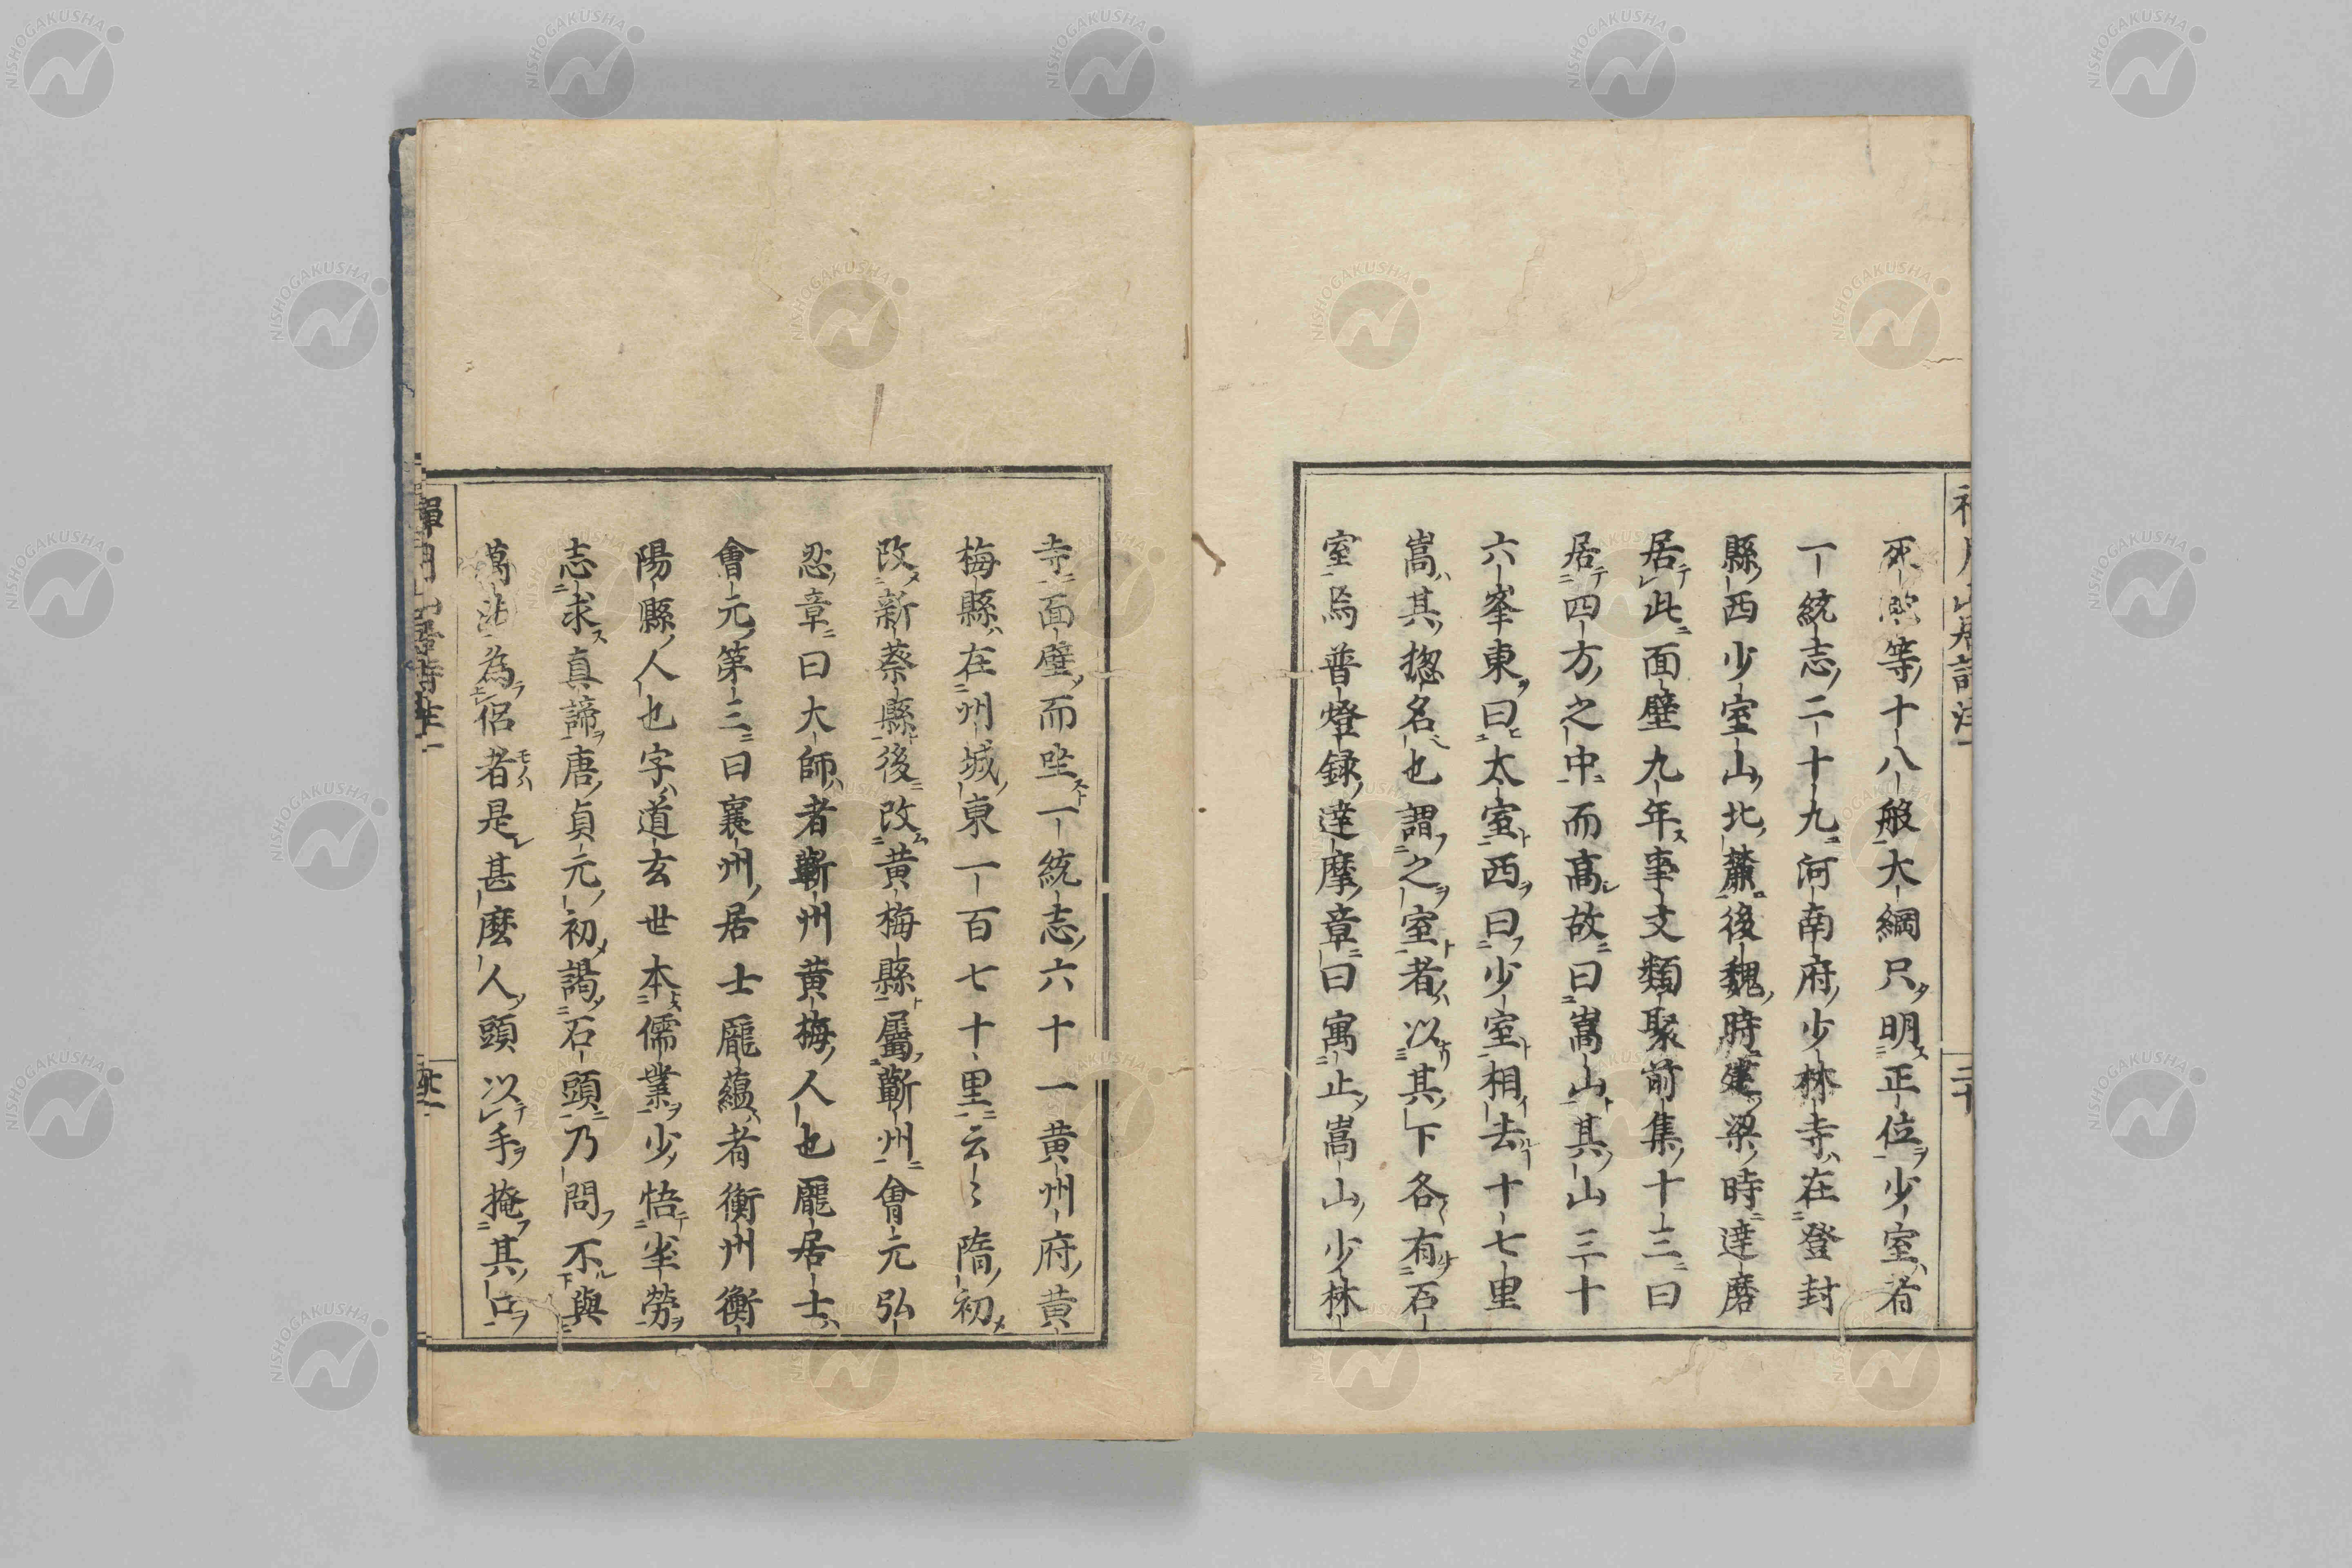 死等十八般大綱只明正位少室者
一統志二十九河南府少林寺在登封
縣西少室山北麓後魏時建梁時達磨
居此面壁九年事文類聚前集十三曰
居四方之中而高故曰嵩山其山三十
六峯東曰太室西曰少室相去十七里
嵩其揔名也謂之室者以其下各有石
室焉普燈録達摩章曰寓止嵩山少林
三十
寺面壁而坐一統志六十一黄州府黄
梅縣在州城東一百七十里云〻隋初
改新蔡縣後改黄梅縣屬蘄州會元弘
忍章曰大師者蘄州黄梅人也龎居士
會元第三曰襄州居士龎蘊者衡州衡
陽縣人也字道玄世本儒業少悟塵勞
志求真諦唐貞元初謁石頭乃問不與
萬法為侶者是甚麼人頭以手掩其口
NISHOGAKUSHA